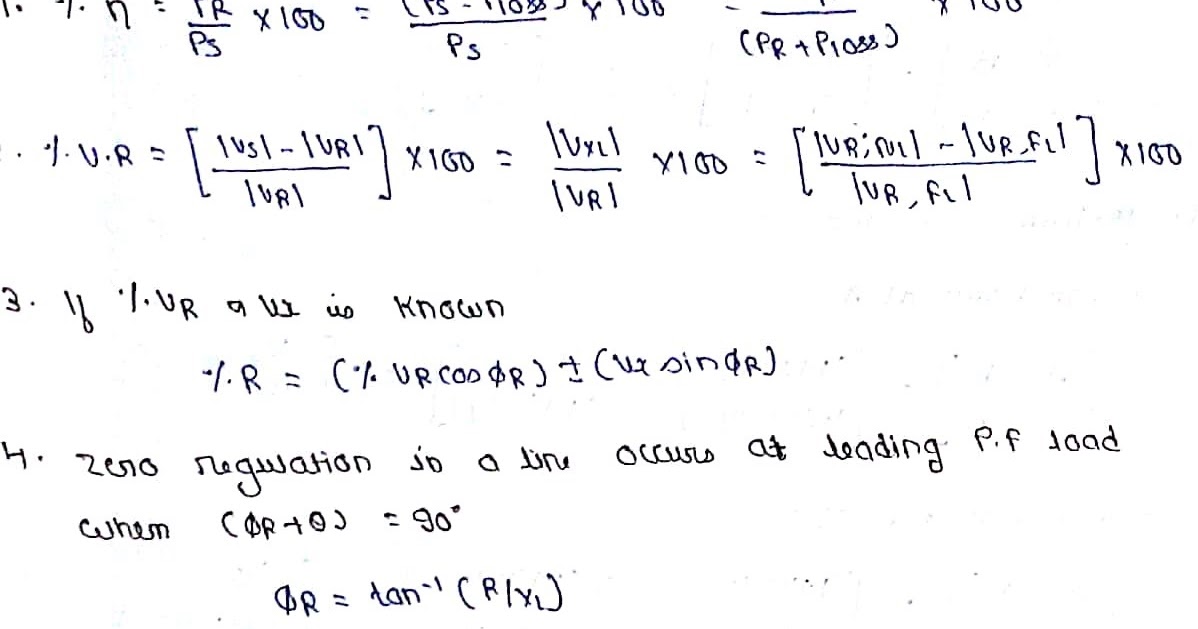 1. % η = PR/Ps × 100 = (Ps - Ploss)/Ps × 100 (PR + Ploss) × 100
. % V.R = [|Vs| - |VR| / |VR|] × 100 = |VXL| / |VR| × 100 = [|VR,NL| - |VR,FL| / |VR,FL|] × 100
3. If % VR & Vx is known
% R = (% VR cos φR) ± (Vx sin φR)
4. Zero regulation in a line occurs at leading P.f load
when (φR + θ) = 90°
φR = tan⁻¹ (R/XL)